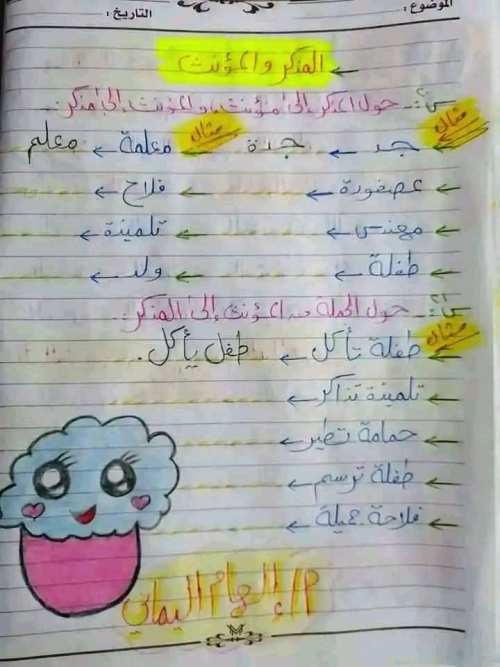 الموضوع: التاريخ:
← المذكر والمؤنث
س١:- حول المذكر إلى مؤنث، والمؤنث إلى مذكر:-
مثال مثال
← جد ← جدة ← معلمة ← معلم
← عصفورة ← ← فلاح ←
← مهندس ← ← تلميذة ←
← طفلة ← ← ولد ←
س٢:- حول الجملة من المؤنث إلى المذكر:-
مثال
← طفلة تأكل ← طفل يأكل.
← تلميذة تذاكر ←
← حمامة تطير ←
← طفلة ترسم ←
← فلاحة جميلة ←
م/ إلهام اليماني